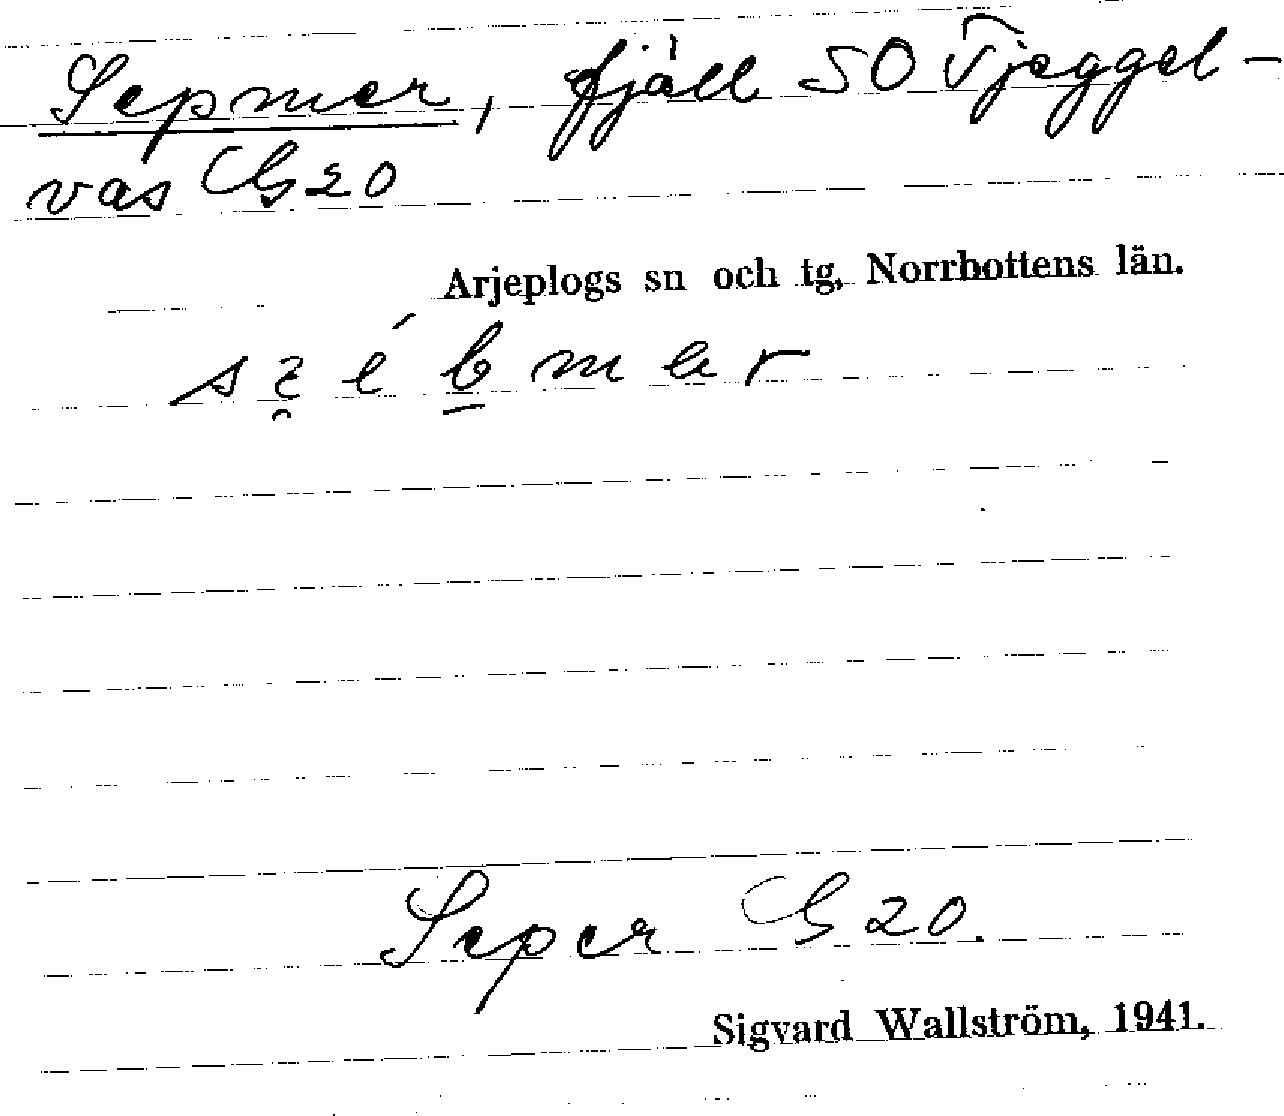 Sepmer, fjäll SO Tjeggel-
vas G20
Arjeplogs sn och tg, Norrbottens län.
Seper G20.
Sigvard Wallström, 1941.